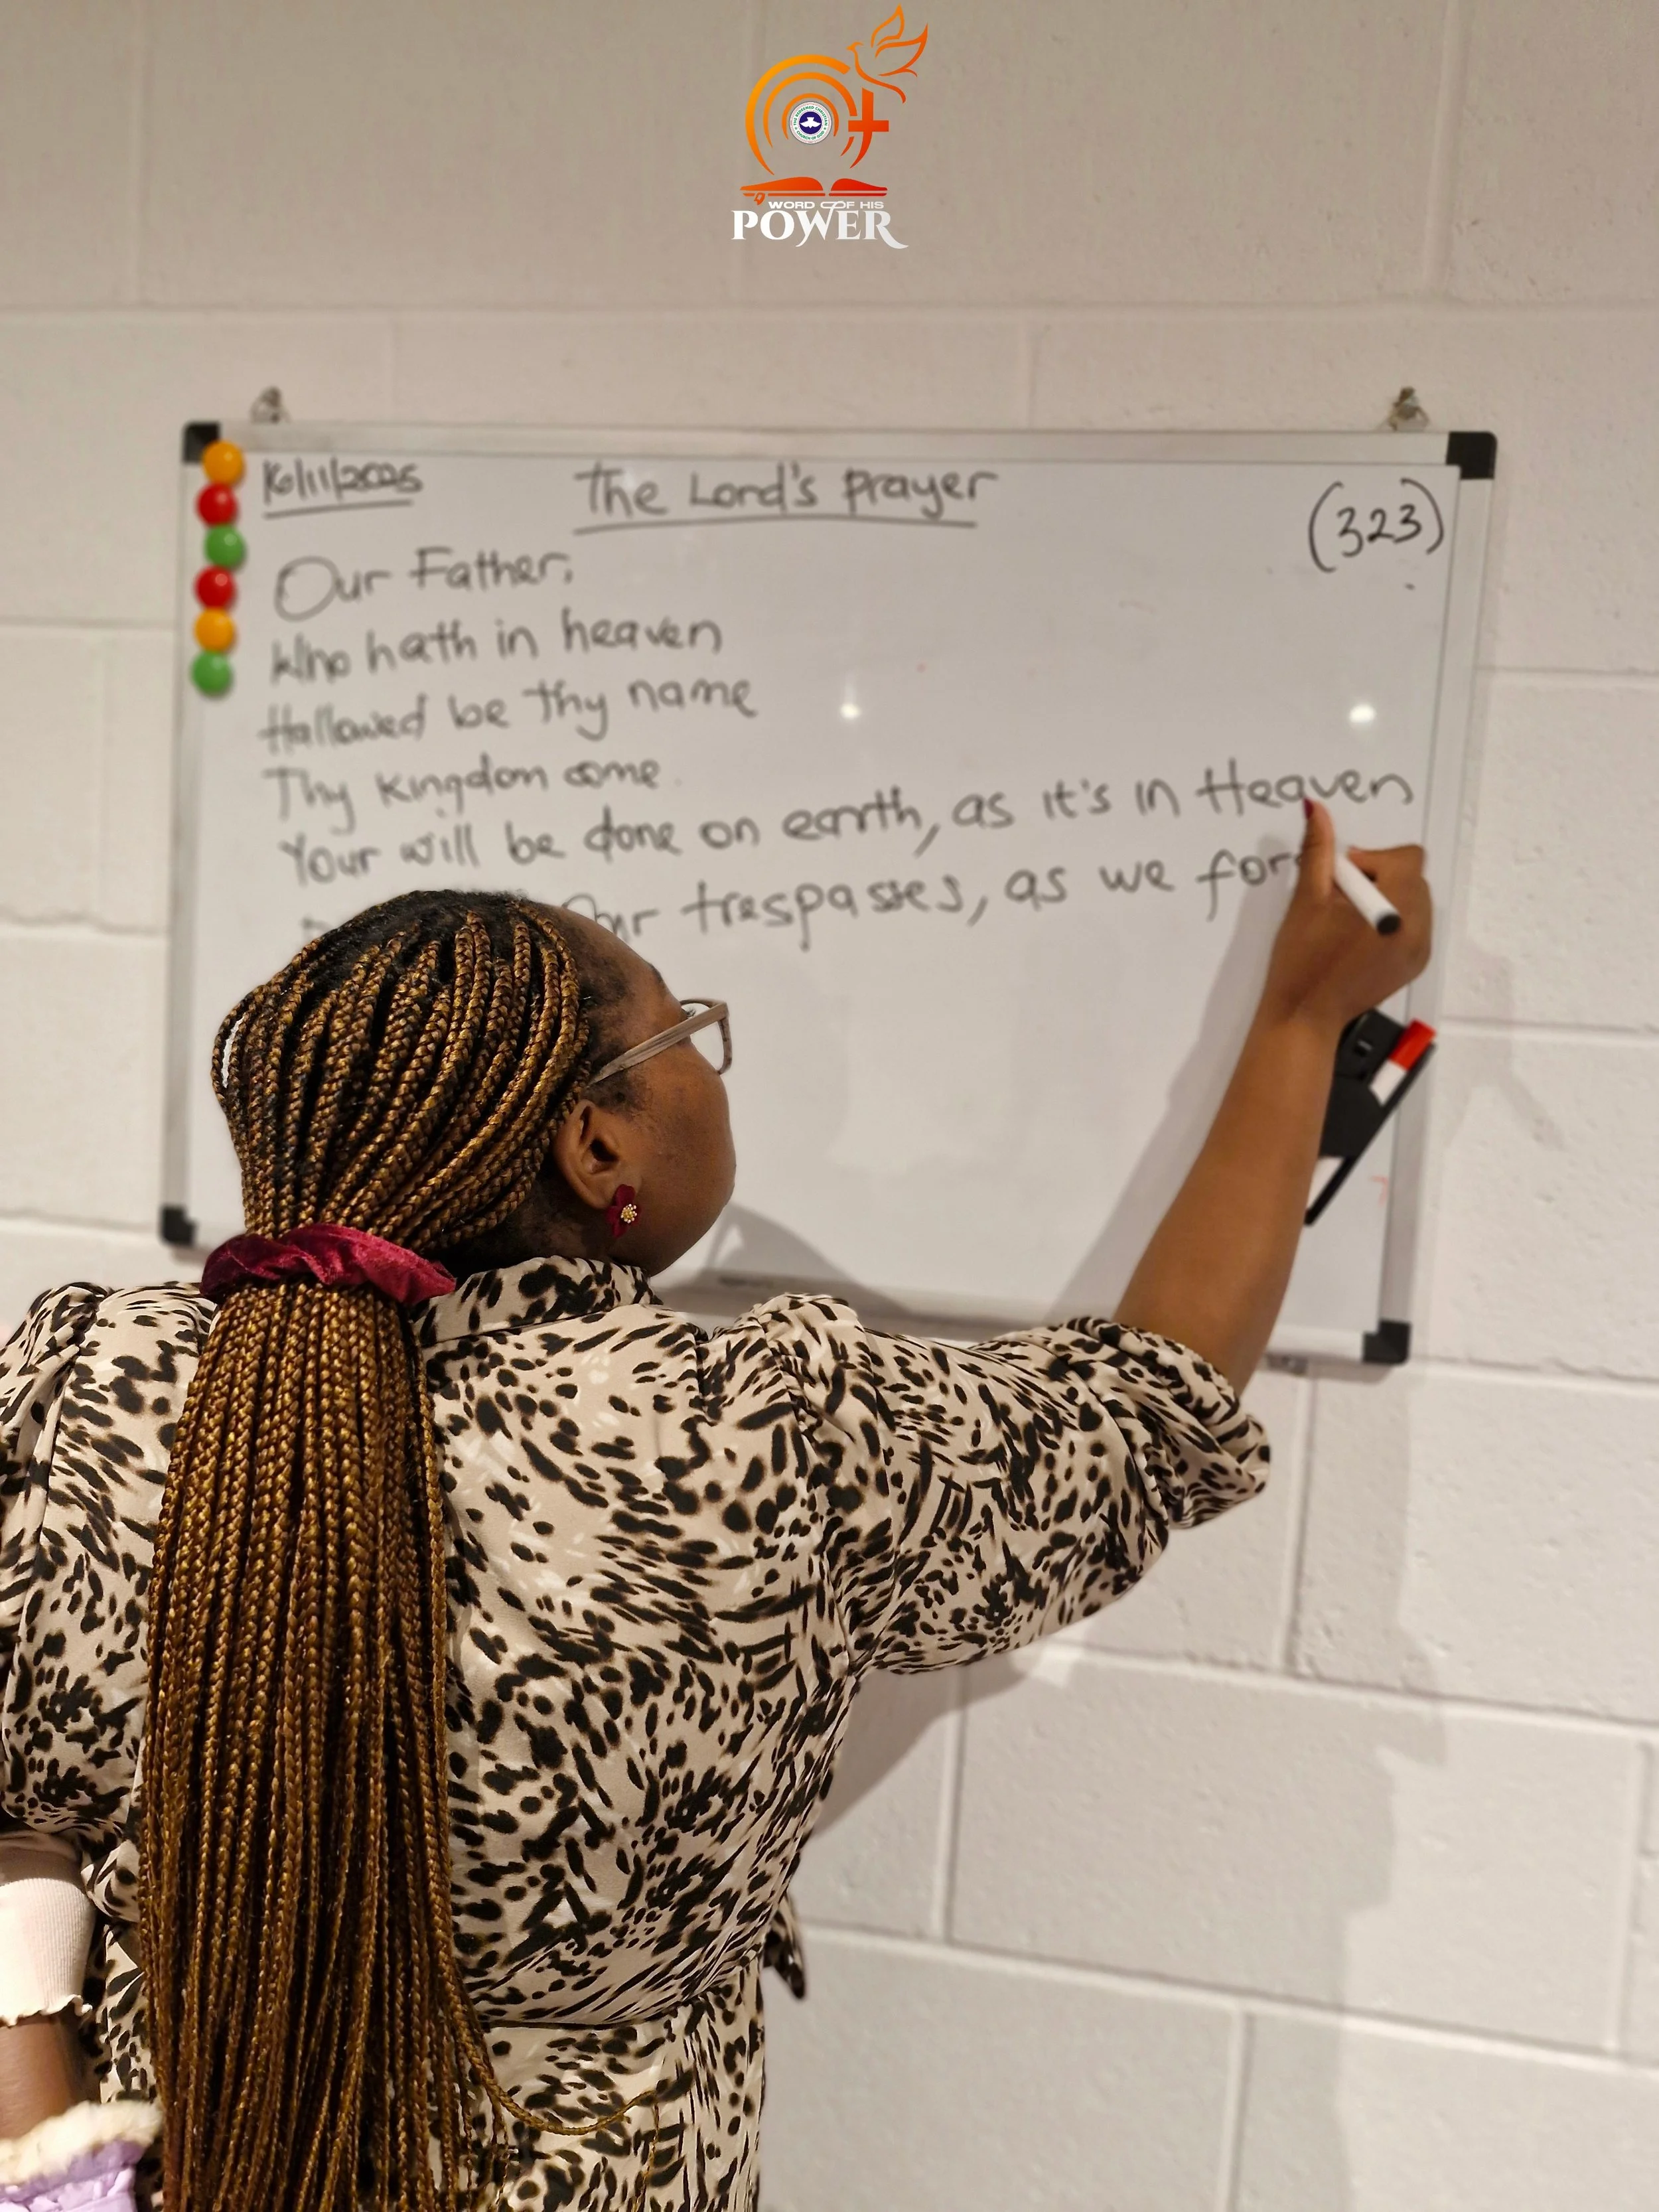 WORD OF HIS
POWER
16/11/2025
The Lord's prayer
(323)
Our Father,
Who hath in heaven
Hallowed be thy name
Thy kingdom come
Your will be done on earth, as it's in Heaven
Our trespasses, as we for